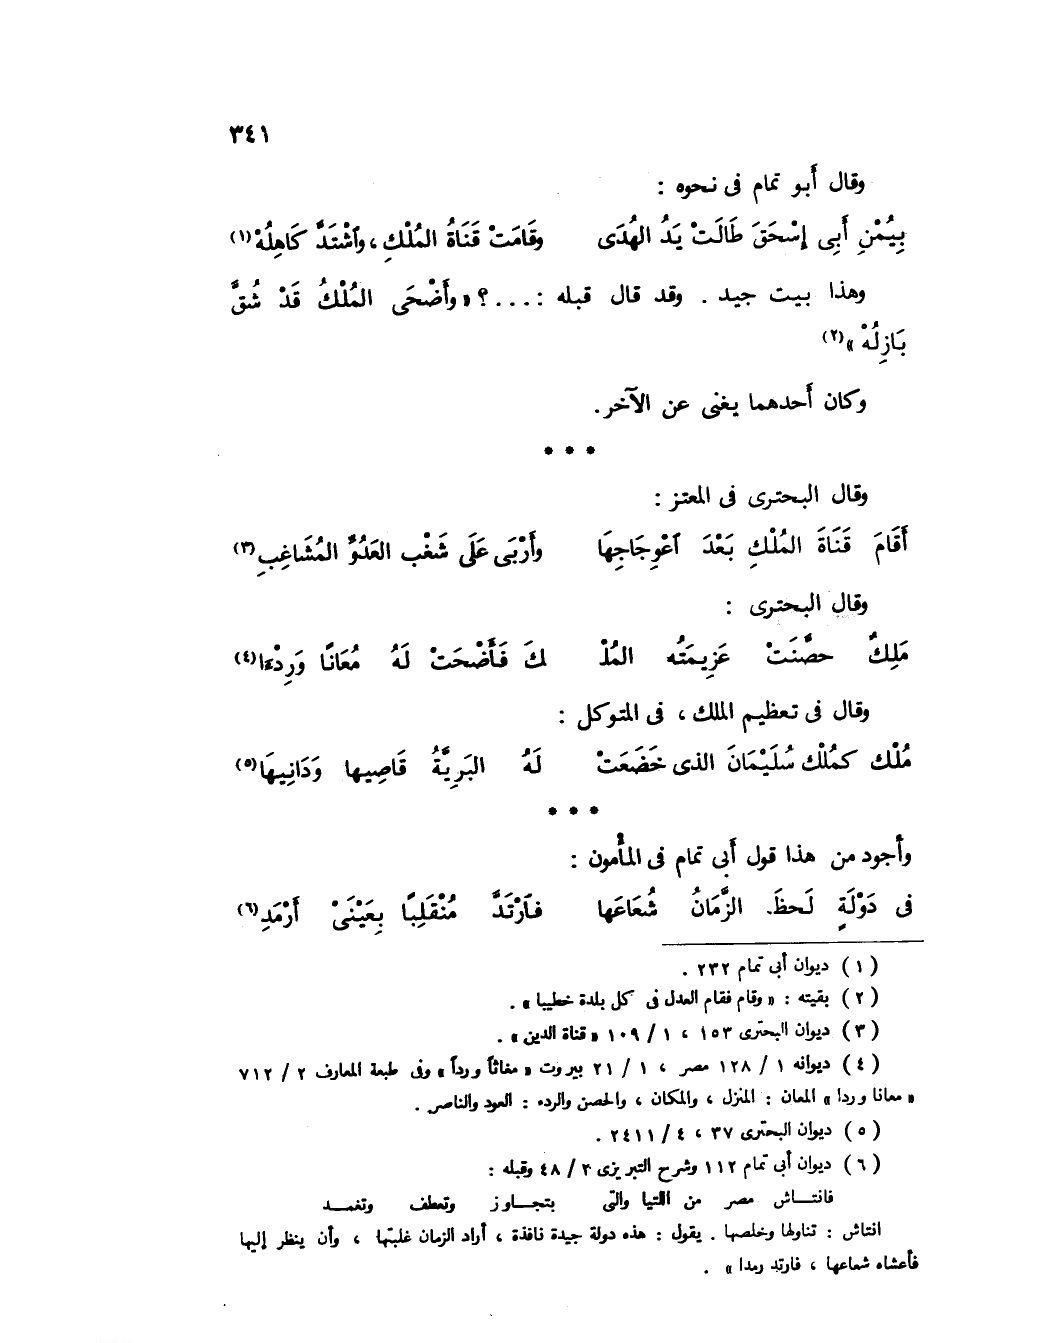 ٣٤١
وقال أبو تمام فى نحوه :
بِيُمْنِ أَبِى إِسْحَقَ طَالَتْ يَدُ الهُدَى وقَامَتْ قَنَاةُ المُلْكِ ، وٱشْتَدَّ كَاهِلُهْ(١)
وهذا بيت جيد . وقد قال قبله : . . . ؟ « وأَضْحَى المُلْكُ قَدْ شُقَّ
بَازِلُهْ »(٢)
وكان أَحدهما يغنى عن الآخر.
* * *
وقال البحترى فى المعتز :
أَقَامَ قَنَاةَ المُلْكِ بَعْدَ ٱعْوِجَاجِهَا وأَرْبَى عَلَى شَغْبِ العَدُوِّ المُشَاغِبِ(٣)
وقال البحترى :
مَلِكٌ حصَّنَتْ عَزِيمَتُه المُلْـ ـكَ فَأَضْحَتْ لَهُ مُعَانًا وَرِدْءَا(٤)
وقال فى تعظيم الملك ، فى المتوكل :
مُلْك كمُلْك سُلَيْمَانَ الذى خَضَعَتْ لَهُ البَرِيَّةُ قَاصِيها وَدَانِيهَا(٥)
* * *
وأجود من هذا قول أَبى تمام فى المأْمون :
فى دَوْلَةٍ لَحظَ الزَّمَانُ شُعَاعَها فٱرْتَدَّ مُنْقَلِبًا بِعَيْنَىْ أَرْمَدِ(٦)
( ١ ) ديوان أبى تمام ٢٣٢ .
( ٢ ) بقيته : « وقام فقام العدل فى كل بلدة خطيبا » .
( ٣ ) ديوان البحترى ١٥٣ ، ١ / ١٠٩ « قناة الدين » .
( ٤ ) ديوانه ١ / ١٢٨ مصر ، ١ / ٢١ بيروت « مغاثاً ورداً » وفى طبعة المعارف ٢ / ٧١٢
« معانا وردا » المعان : المنزل ، والمكان ، والحصن والردء : العود والناصر .
( ٥ ) ديوان البحترى ٣٧ ، ٤ / ٢٤١١ .
( ٦ ) ديوان أبى تمام ١١٢ وشرح التبريزى ٣ / ٤٨ وقبله :
فانتـاش مصر من اللتيا والتى بتجـاوز وتعطف وتغمـد
انتاش : تناولها وخلصها . يقول : هذه دولة جيدة نافذة ، أراد الزمان غلبتها ، وأن ينظر إليها
فأعشاه شعاعها ، فارتد رمدا » .